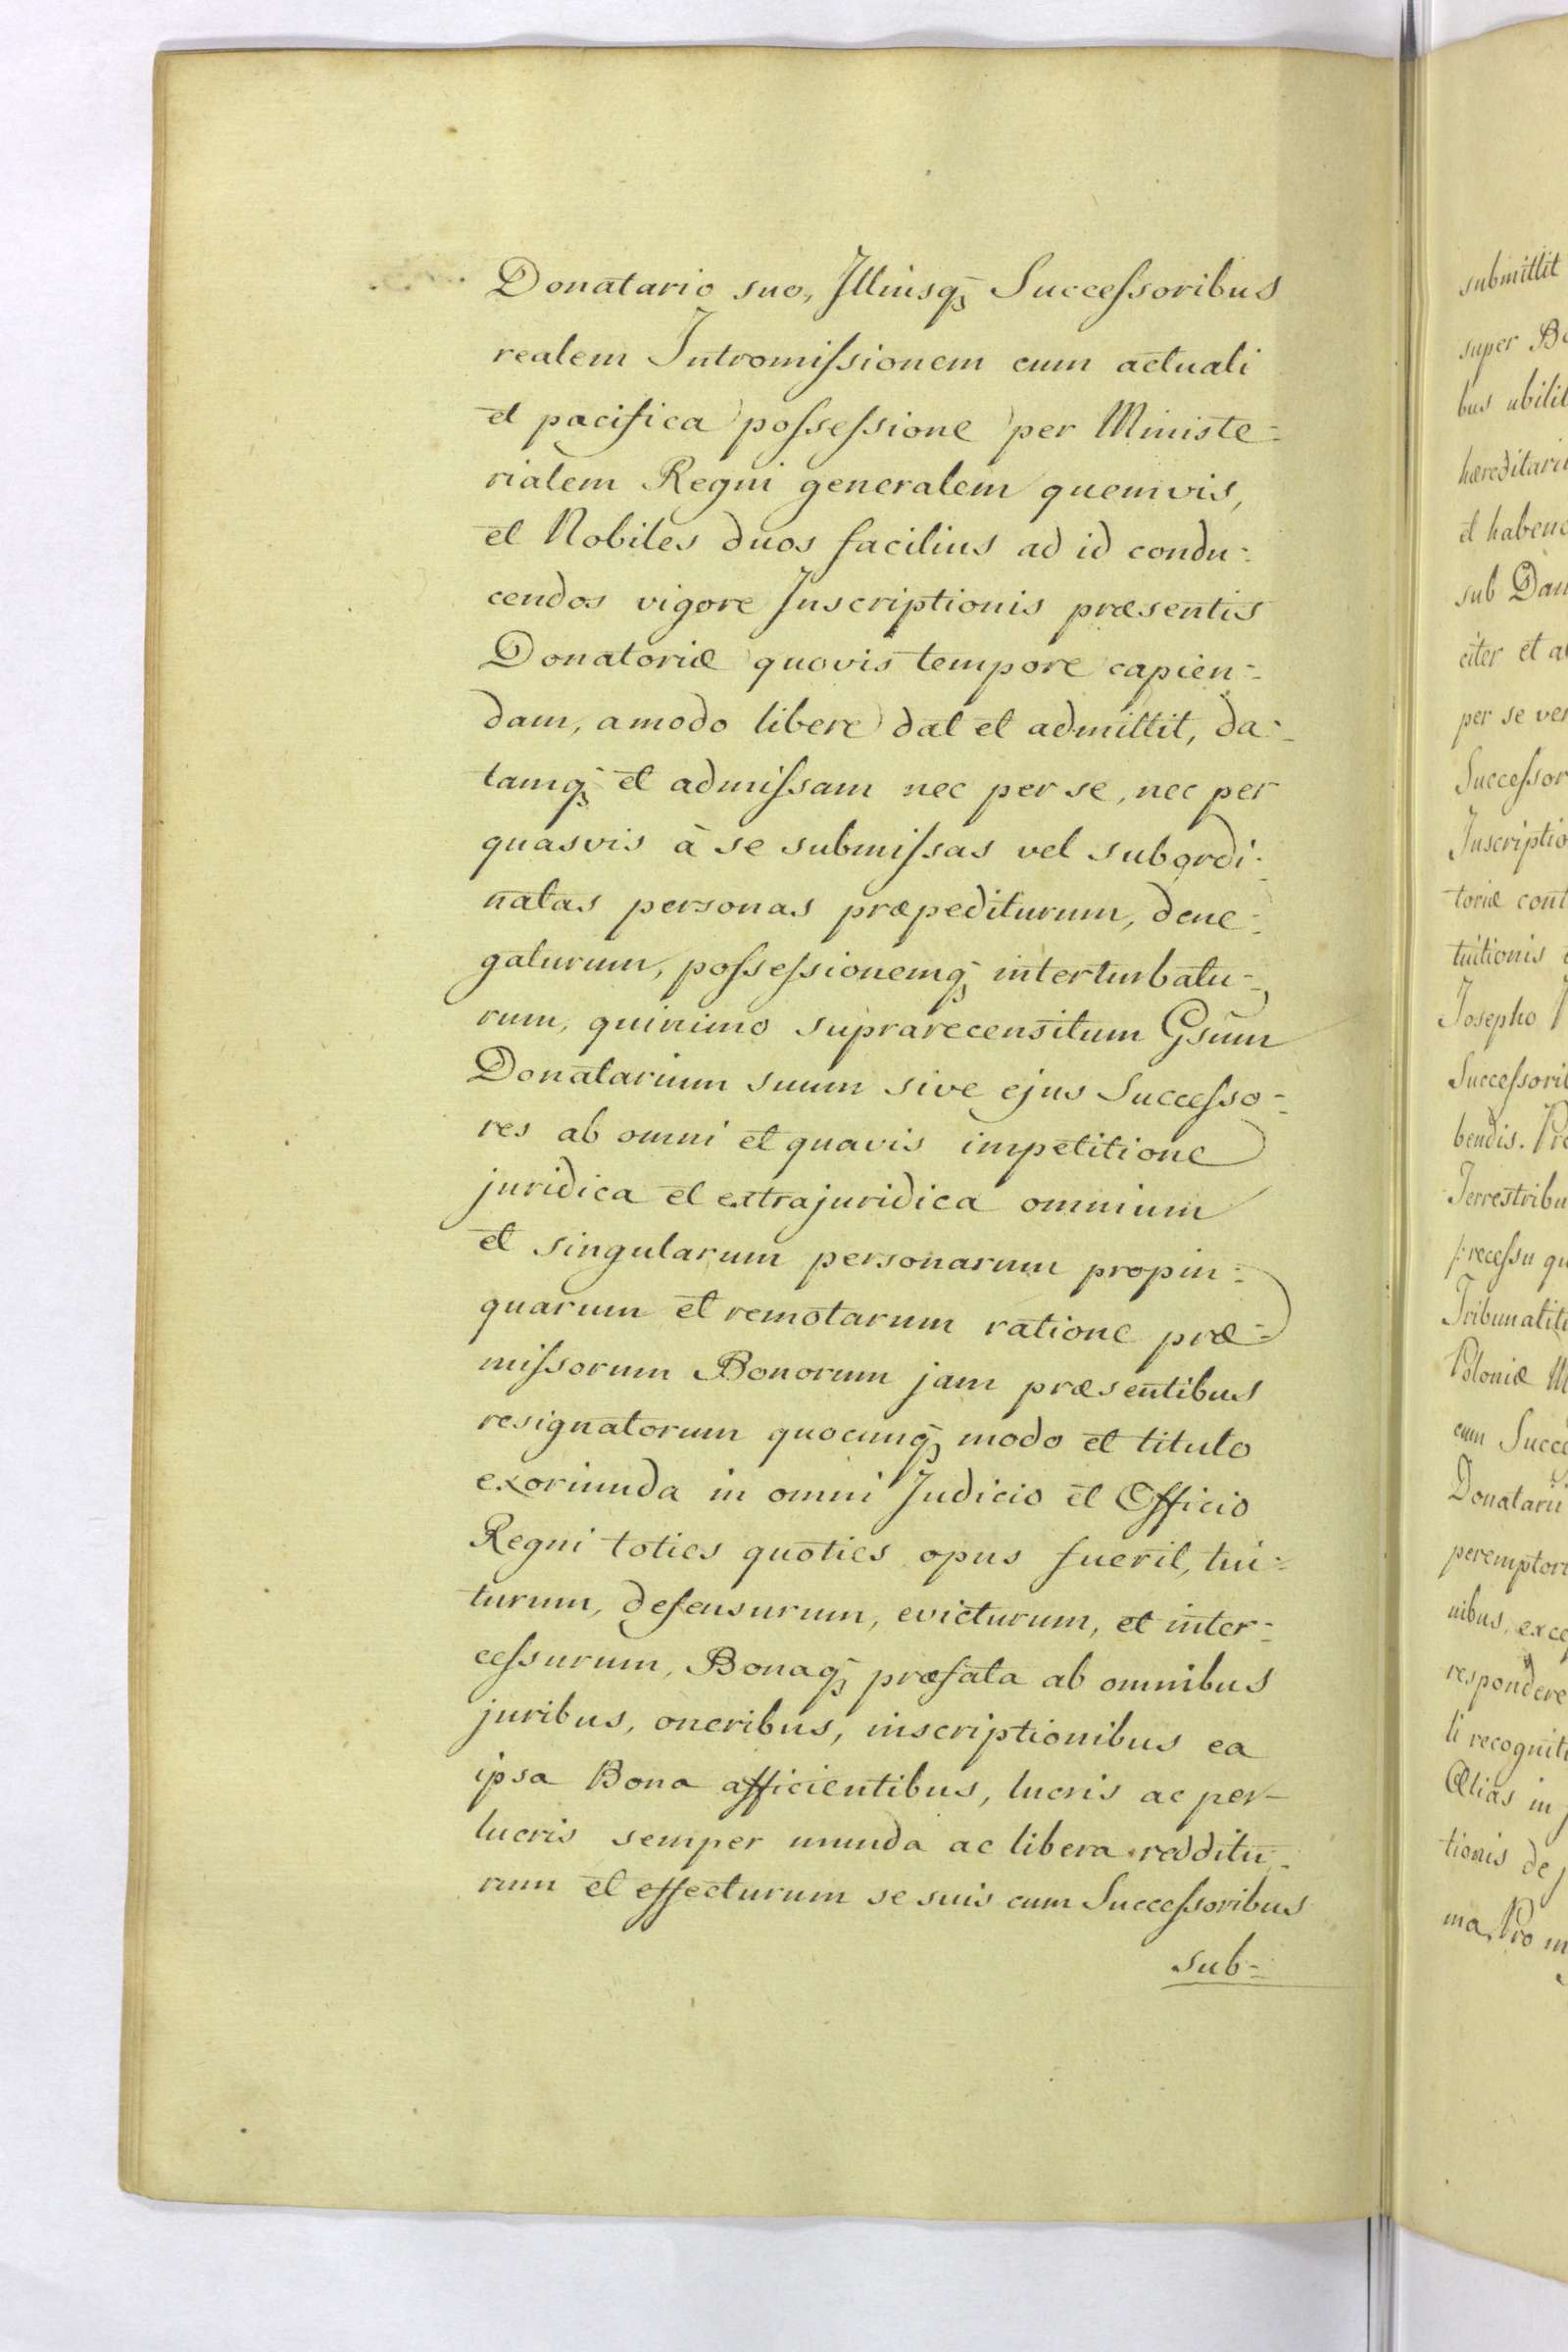 Donatario suo, Illiusq; Succeſsoribus
realem Intromiſsionem cum actuali
et pacifica poſseſsione per Ministe-
rialem Regni generalem quemvis,
et Nobiles duos facilius ad id condu-
cendos vigore Inscriptionis præsentis
Donatoriæ quovis tempore capien-
dam, amodo libere dat et admittit, da-
tamq; et admiſsam nec per se, nec per
quasvis à se submiſsas vel subordi-
natas personas præpediturum, dene-
gaturum, poſseſsionemq; interturbatu-
rum, quinimo suprarecensitum Gsum
Donatarium suum sive ejus Succeſso-
res ab omni et quavis impetitione
juridica et extrajuridica omnium
et singularum personarum propin-
quarum et remotarum ratione præ-
miſsorum Bonorum jam præsentibus
resignatorum quocunq; modo et titulo
exoriunda in omni Judicio et Officio
Regni toties quoties opus fuerit, tui-
turum, defensurum, evicturum, et inter-
ceſsurum, Bonaq; præfata ab omnibus
juribus, oneribus, inscriptionibus ea
ipsa Bona afficientibus, lucris ac per-
lucris semper munda ac libera redditu-
rum et effecturum se suis cum Succeſsoribus
sub-
submittit
super
hæreditari
sub
citer et
per se
Succeſsor
Inscriptio
toriæ
tuitionis
Josepho
Succeſsori
bendis.
Terrestribu
Poloniæ
cum
Donatarii
peremptor
nibus,
respondere
li
Alias in
tionis de
ma. Pro